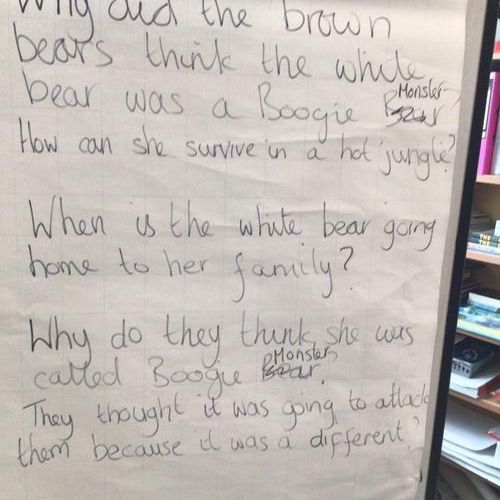 Why did the brown
bears think the white
bear was a Boogie Monster
How can she survive in a hot jungle?
When is the white bear going
home to her family?
Why do they think she was
called Boogie Monster.
They thought it was going to attack
them because it was a different?